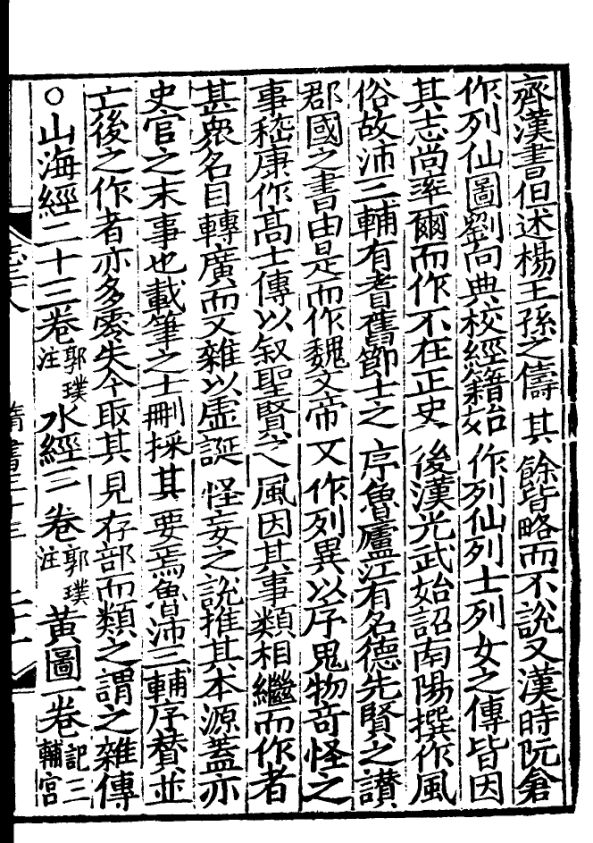 齊漢書但述楊王孫之儔其餘皆略而不說又漢時阮倉
作列仙圖劉向典校經籍始作列仙列士列女之傳皆因
其志尚率爾而作不在正史後漢光武始詔南陽撰作風
俗故沛三輔有耆舊節士之序魯廬江有名德先賢之讃
郡國之書由是而作魏文帝又作列異以序鬼物奇怪之
事嵇康作髙士傳以叙聖賢之風因其事類相繼而作者
甚衆名目轉廣而又雜以虛誕怪妄之說推其本源蓋亦
史官之末事也載筆之士刪採其要焉魯沛三輔序贊並
亡後之作者亦多零失今取其見存部而類之謂之雜傳
○山海經二十三卷郭璞注水經三卷郭璞注黃圖一卷記三輔宮